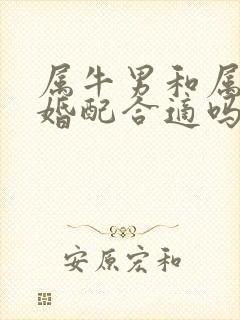 属牛男和属
婚配合适吗
安原宏和